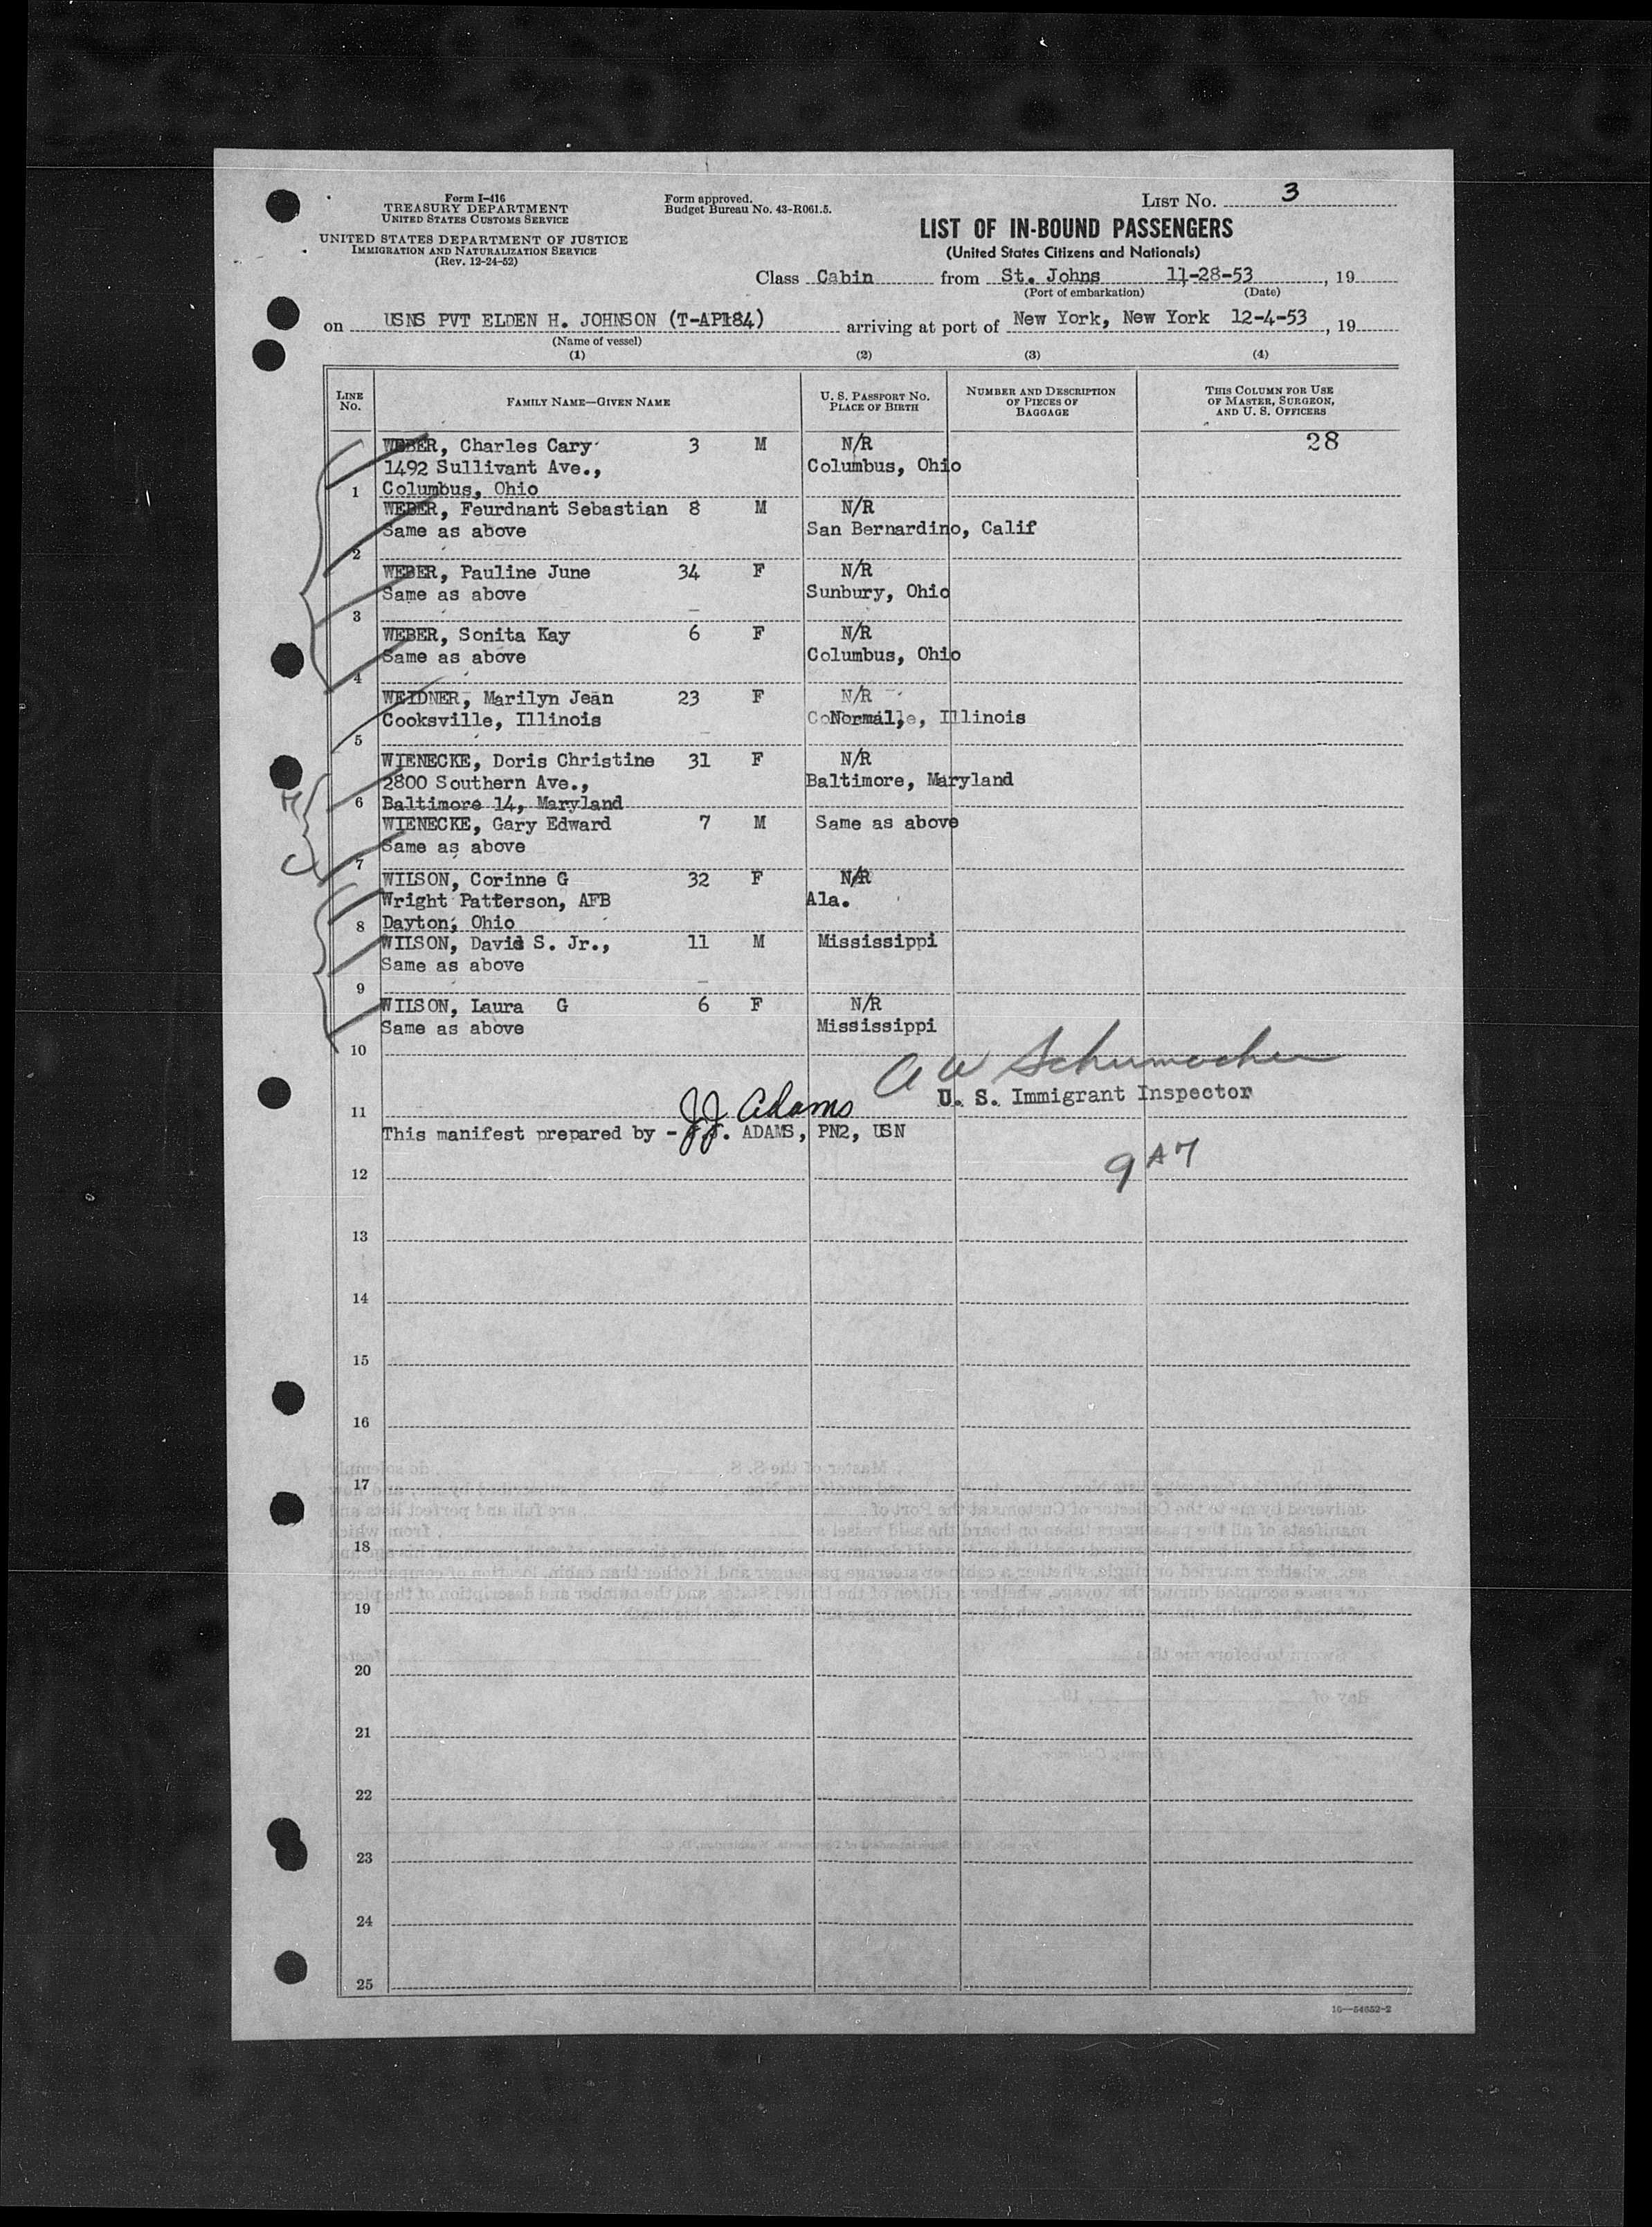 Form I-416
TREASURY DEPARTMENT
UNITED STATES CUSTOMS SERVICE
UNITED STATES DEPARTMENT OF JUSTICE
IMMIGRATION AND NATURALIZATION SERVICE
(Rev. 12-24-52)
Form approved.
Budget Bureau No. 43-R061.5.
LIST No. 3
LIST OF IN-BOUND PASSENGERS
(United States Citizens and Nationals)
Class Cabin from St. Johns 11-28-53, 19
(Port of embarkation) (Date)
on USNS PVT ELDEN H. JOHNSON (T-AP184) arriving at port of New York, New York 12-4-53, 19
(Name of vessel)
(1) (2) (3) (4)
LINE No. FAMILY NAME—GIVEN NAME U. S. PASSPORT No. PLACE OF BIRTH NUMBER AND DESCRIPTION OF PIECES OF BAGGAGE THIS COLUMN FOR USE OF MASTER, SURGEON, AND U. S. OFFICERS
WEBER, Charles Cary 3 M N/R 28
1492 Sullivant Ave., Columbus, Ohio
1 Columbus, Ohio
WEBER, Feurdnant Sebastian 8 M N/R
Same as above San Bernardino, Calif
2
WEBER, Pauline June 34 F N/R
Same as above Sunbury, Ohio
3
WEBER, Sonita Kay 6 F N/R
Same as above Columbus, Ohio
4
WEIDNER, Marilyn Jean 23 F N/R
Cooksville, Illinois Normal, Illinois
5
WIENECKE, Doris Christine 31 F N/R
2800 Southern Ave., Baltimore, Maryland
6 Baltimore 14, Maryland
WIENECKE, Gary Edward 7 M Same as above
Same as above
7
WILSON, Corinne G 32 F N/R
Wright Patterson, AFB Ala.
8 Dayton, Ohio
WILSON, David S. Jr., 11 M Mississippi
Same as above
9
WILSON, Laura G 6 F N/R
Same as above Mississippi
10
A W Schumacher
U. S. Immigrant Inspector
11 JJ Adams
This manifest prepared by - J.J. ADAMS, PN2, USN
9 A 7
12
13
14
15
16
17
18
19
20
21
22
23
24
25
16—54652-2